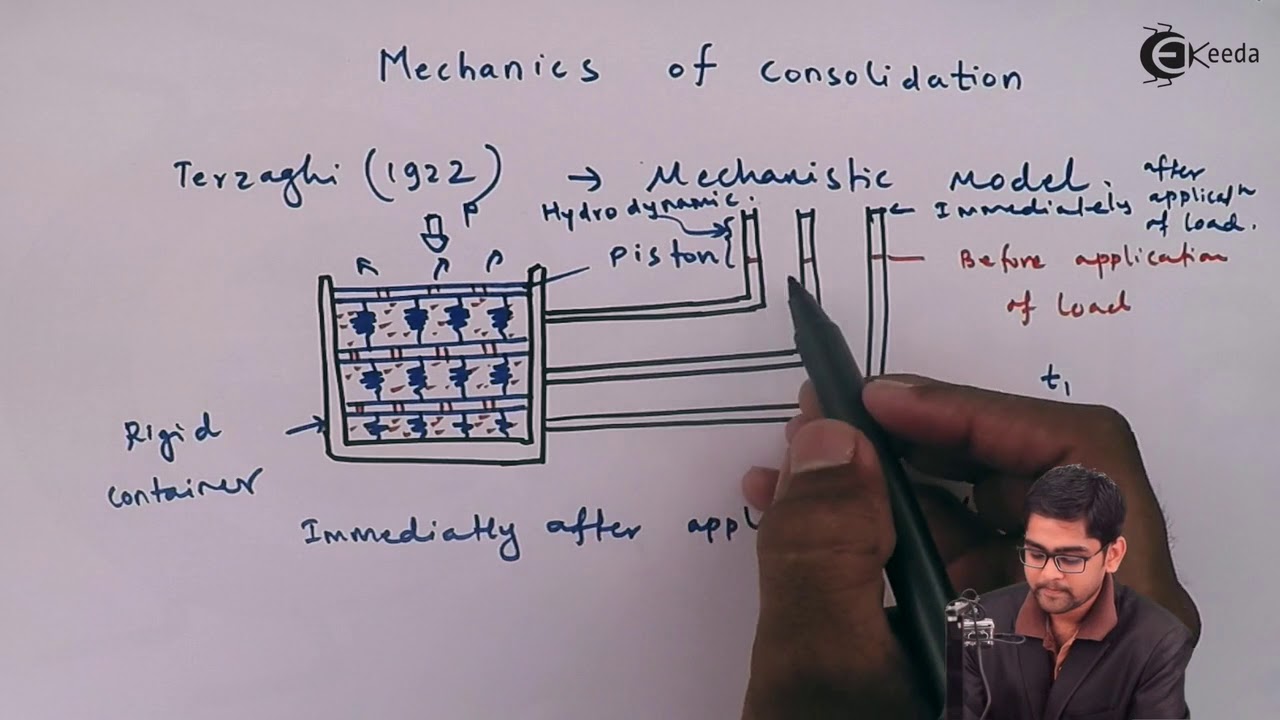 Keeda
Mechanics of consolidation
Terzaghi (1922) → Mechanistic Model.
P
Hydrodynamic.
Piston
after
applicatn
Immediately of load.
Before application
of load
t1
Rigid
container
Immediatly after